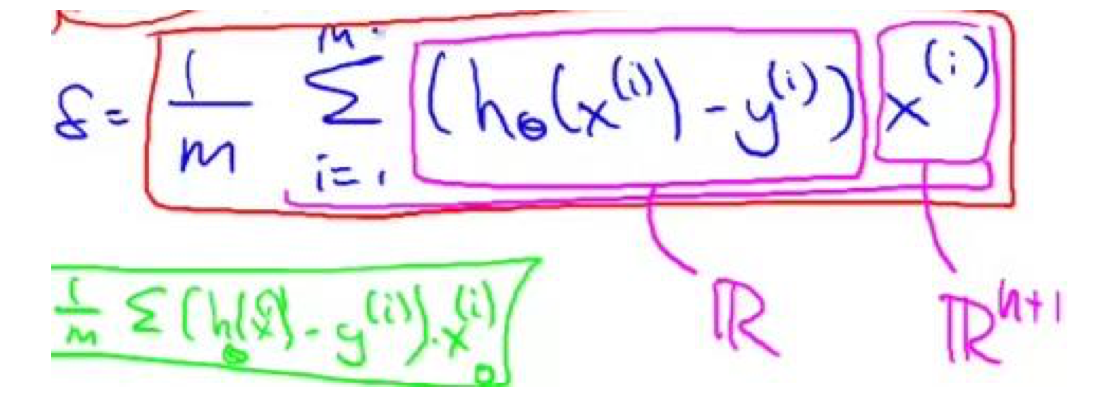 δ = 1/m Σ_{i=1}^{m} (h_θ(x^{(i)}) - y^{(i)}) x^{(i)}
ℝ ℝ^{n+1}
1/m Σ (h_θ(x^{(i)}) - y^{(i)}) · x_0^{(i)}